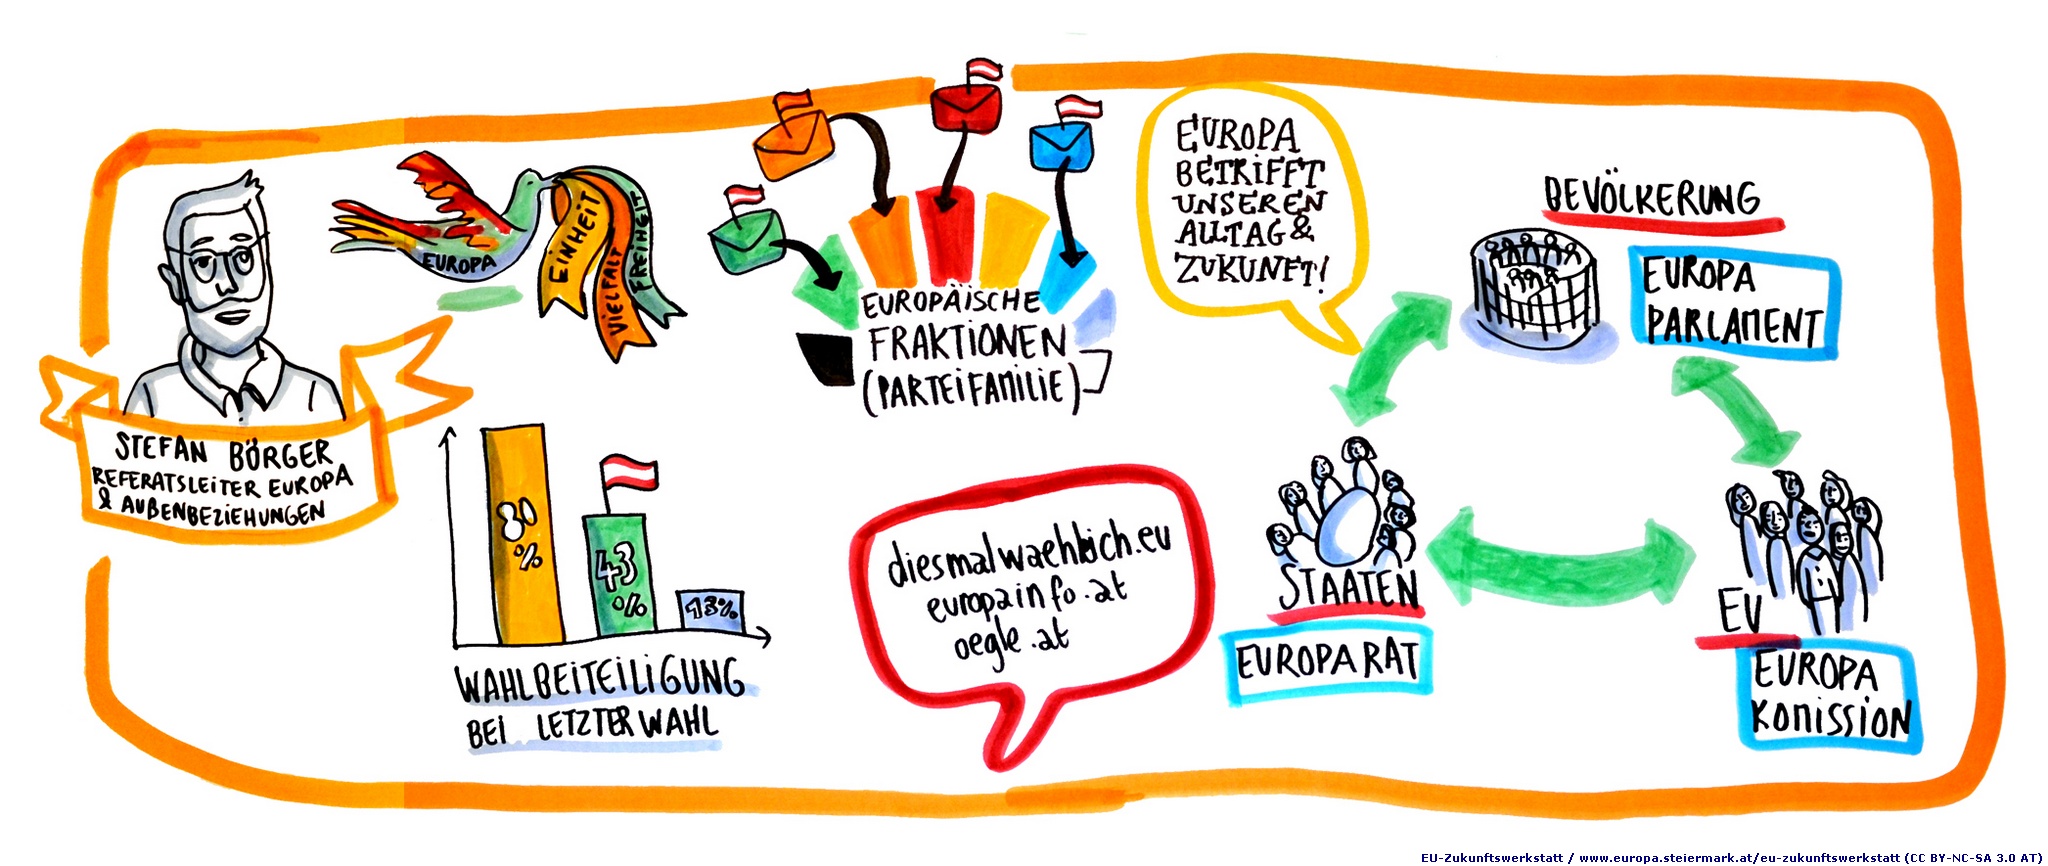 STEFAN BÖRGER
REFERATSLEITER EUROPA
& AUßENBEZIEHUNGEN
EUROPA
EINHEIT
VIELFALT
FREIHEIT
EUROPÄISCHE
FRAKTIONEN
(PARTEIFAMILIE)
EUROPA
BETRIFFT
UNSEREN
ALLTAG &
ZUKUNFT!
BEVÖLKERUNG
EUROPA
PARLAMENT
80
%
43
%
13%
WAHLBEITEILIGUNG
BEI LETZTER WAHL
diesmalwaehleich.eu
europainfo.at
oegfe.at
STAATEN
EUROPARAT
EU
EUROPA
KOMISSION
EU-Zukunftswerkstatt / www.europa.steiermark.at/eu-zukunftswerkstatt (CC BY-NC-SA 3.0 AT)